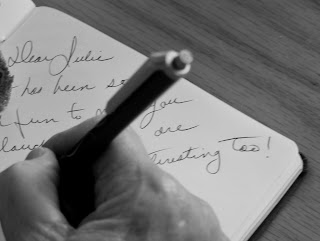 Dear Julie
has been so
fun to you
are
teresting too!